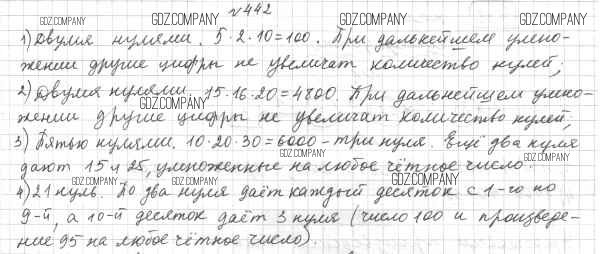 №442
GDZ.COMPANY GDZ.COMPANY GDZ.COMPANY
1) Двумя нулями. 5·2·10=100. При дальнейшем умно-
жении другие цифры не увеличат количество нулей;
2) Двумя нулями. 15·16·20=4800. При дальнейшем умно-
GDZ.COMPANY
жении другие цифры не увеличат количество нулей;
3) Пятью нулями. 10·20·30=6000-три нуля. Ещё два нуля
дают 15 и 25, умноженные на любое чётное число.
GDZ.COMPANY
GDZ.COMPANY GDZ.COMPANY GDZ.COMPANY
4) 21 нуль. По два нуля даёт каждый десяток с 1-го по
9-й, а 10-й десяток даёт 3 нуля (число 100 и произведе-
ние 95 на любое чётное число).
GDZ.COMPANY GDZ.COMPANY